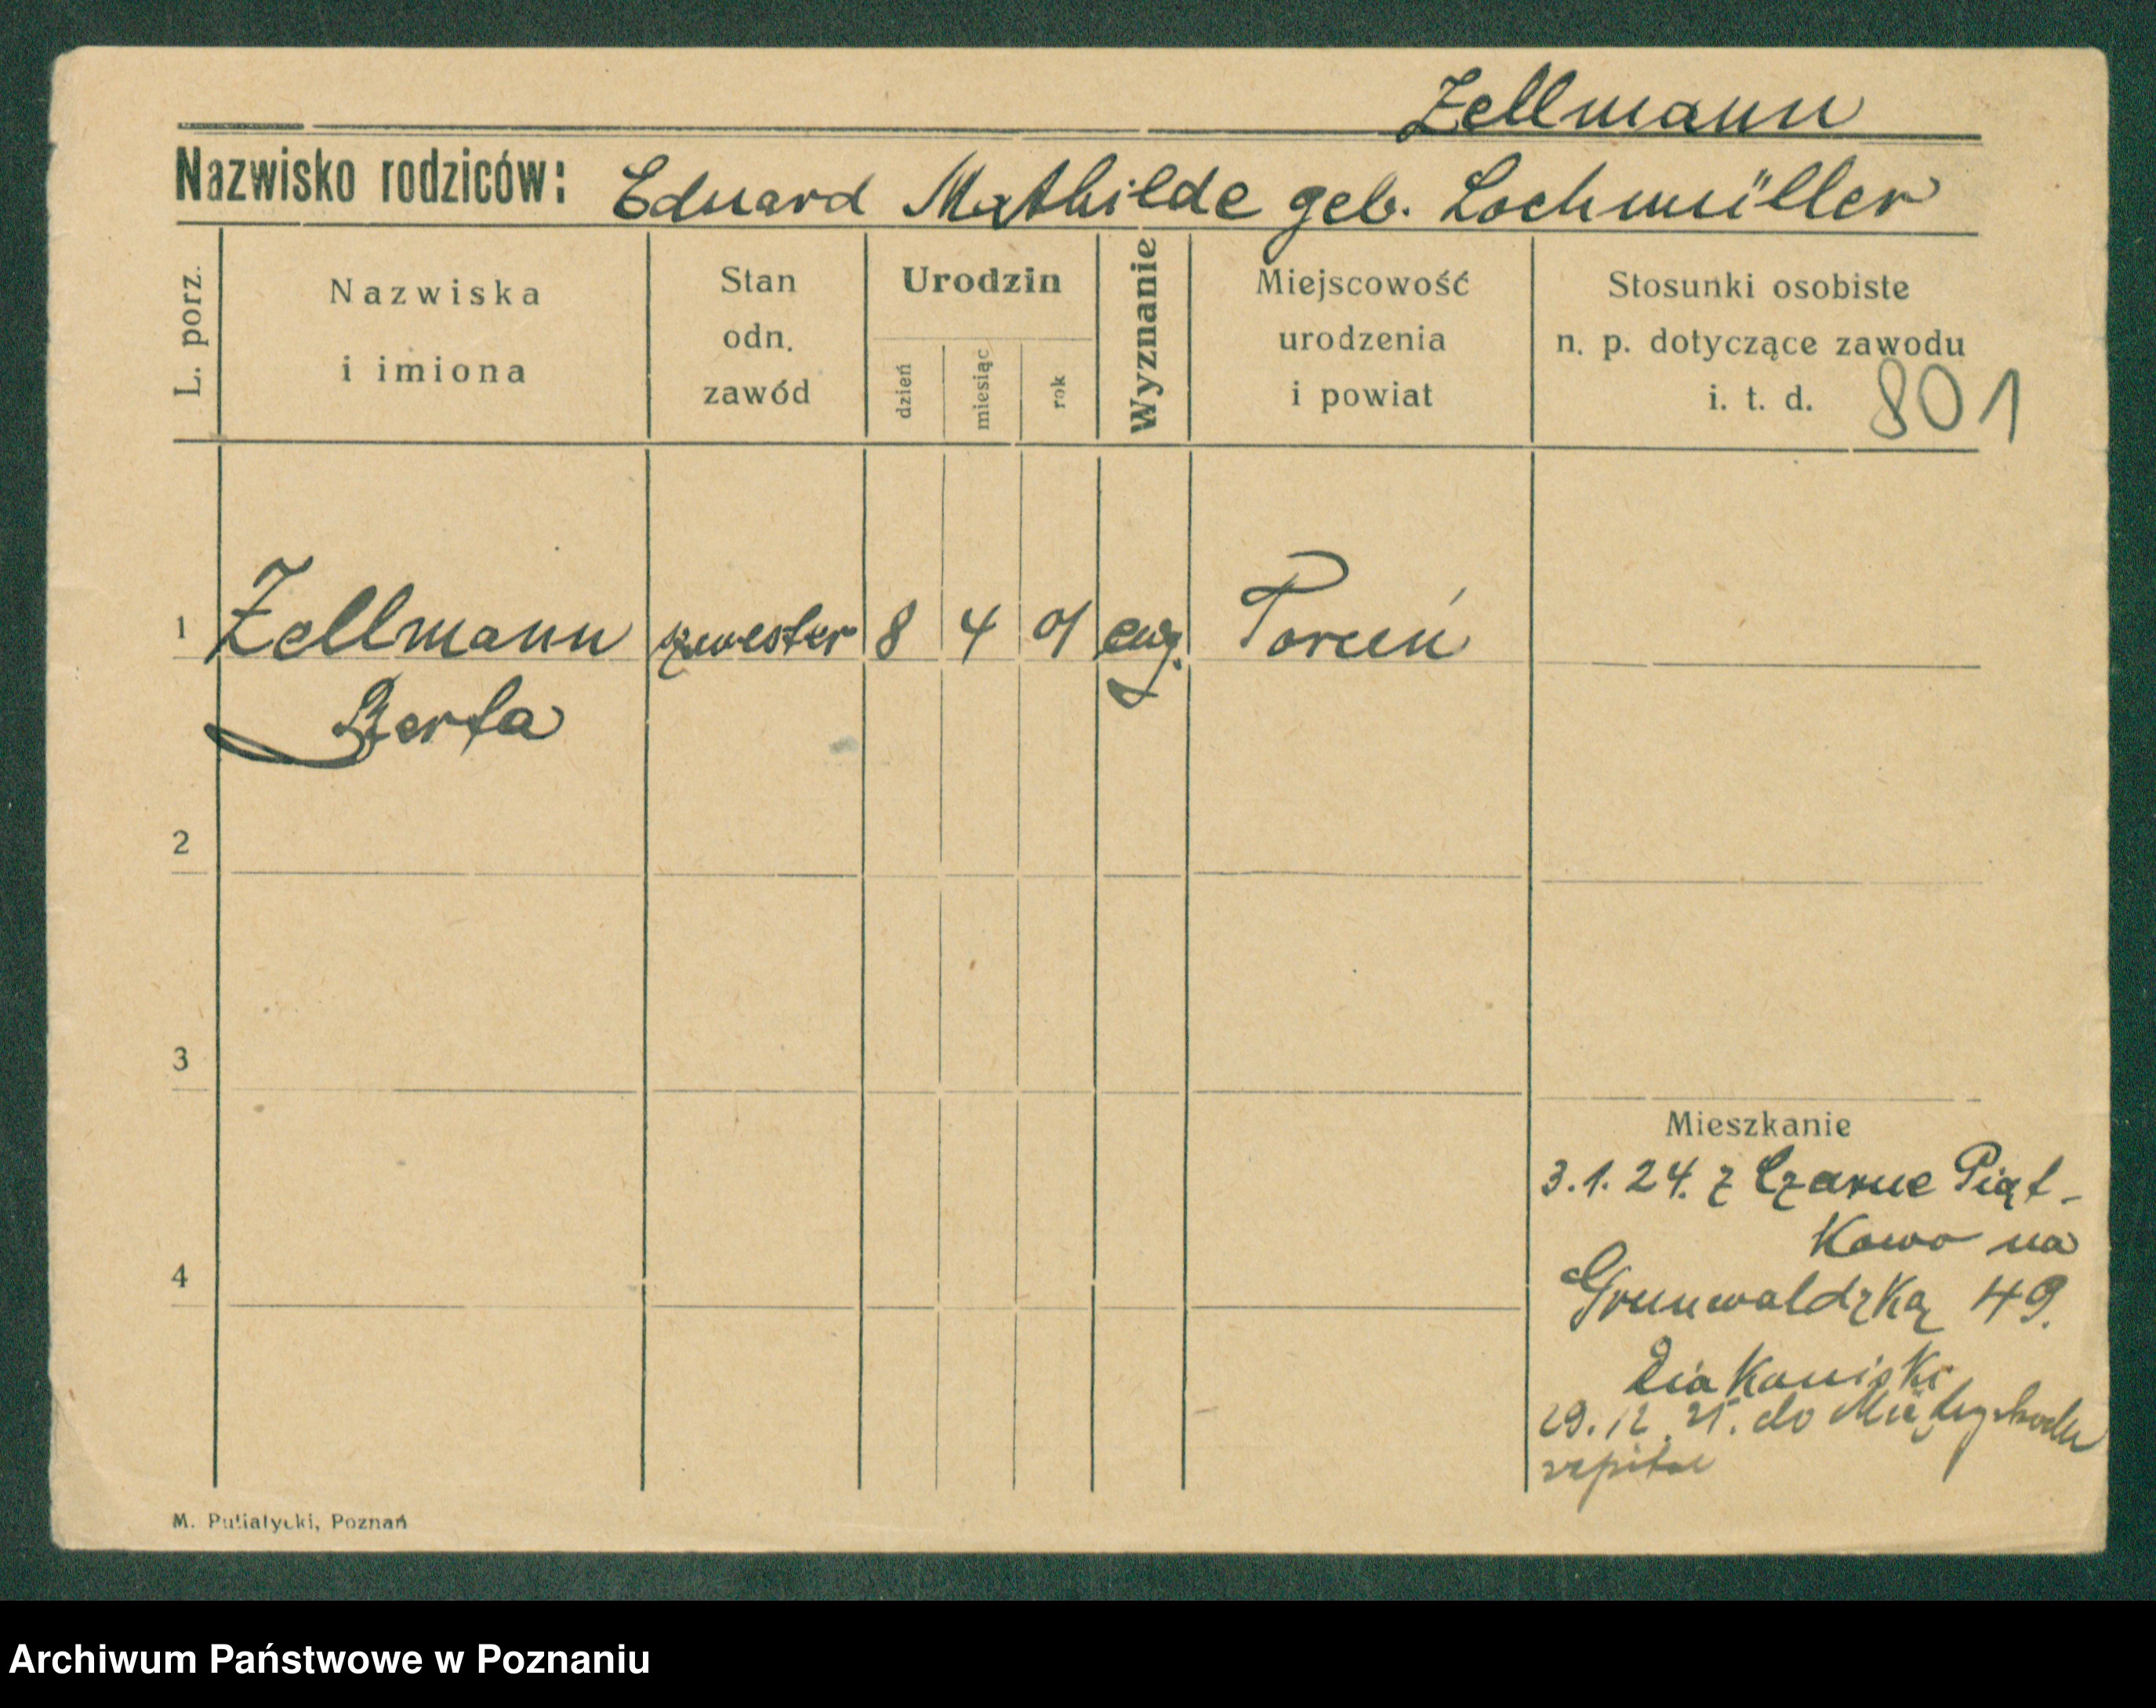 Zellmann
Nazwisko rodziców: Eduard Mathilde geb. Lochmüller
L. porz.
Nazwiska
i imiona
Stan
odn.
zawód
Urodzin
dzień
miesiąc
rok
Wyznanie
Miejscowość
urodzenia
i powiat
Stosunki osobiste
n. p. dotyczące zawodu
i. t. d.
801
1 Zellmann szwester 8 4 01 ewg. Toruń
Berta
2
3
Mieszkanie
3.1.24. z Czarne Piąt-
kowo na
4
Grunwaldzką 49.
Diakoniski
29.12. 25. do Międzychodu
M. Putiatycki, Poznań
Archiwum Państwowe w Poznaniu